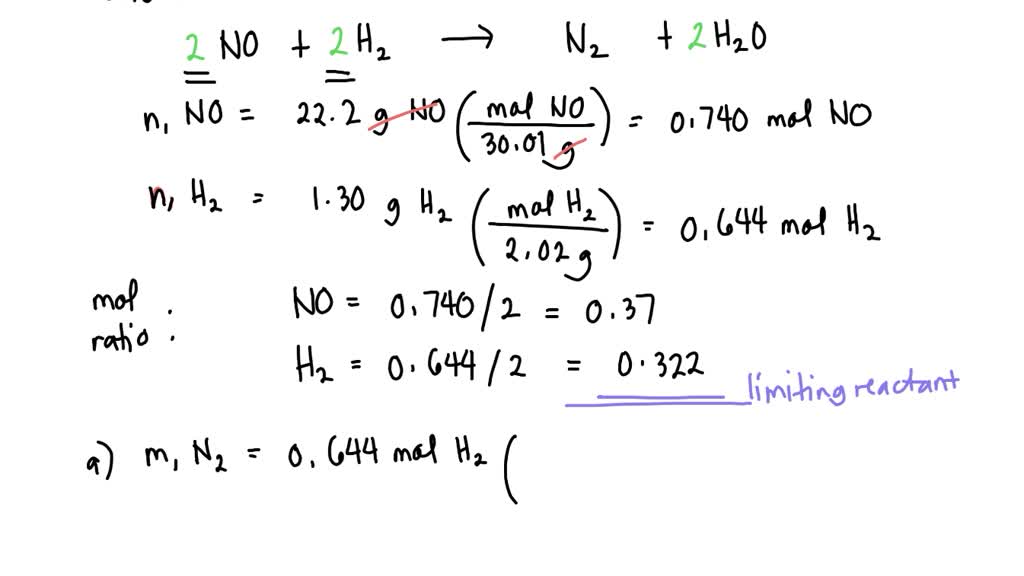 2 NO + 2 H₂ → N₂ + 2 H₂O
n, NO = 22.2 g NO (mol NO / 30.01 g) = 0.740 mol NO
n, H₂ = 1.30 g H₂ (mol H₂ / 2.02 g) = 0.644 mol H₂
mol ratio : NO = 0.740/2 = 0.37
H₂ = 0.644/2 = 0.322 limiting reactant
a) m, N₂ = 0.644 mol H₂ (